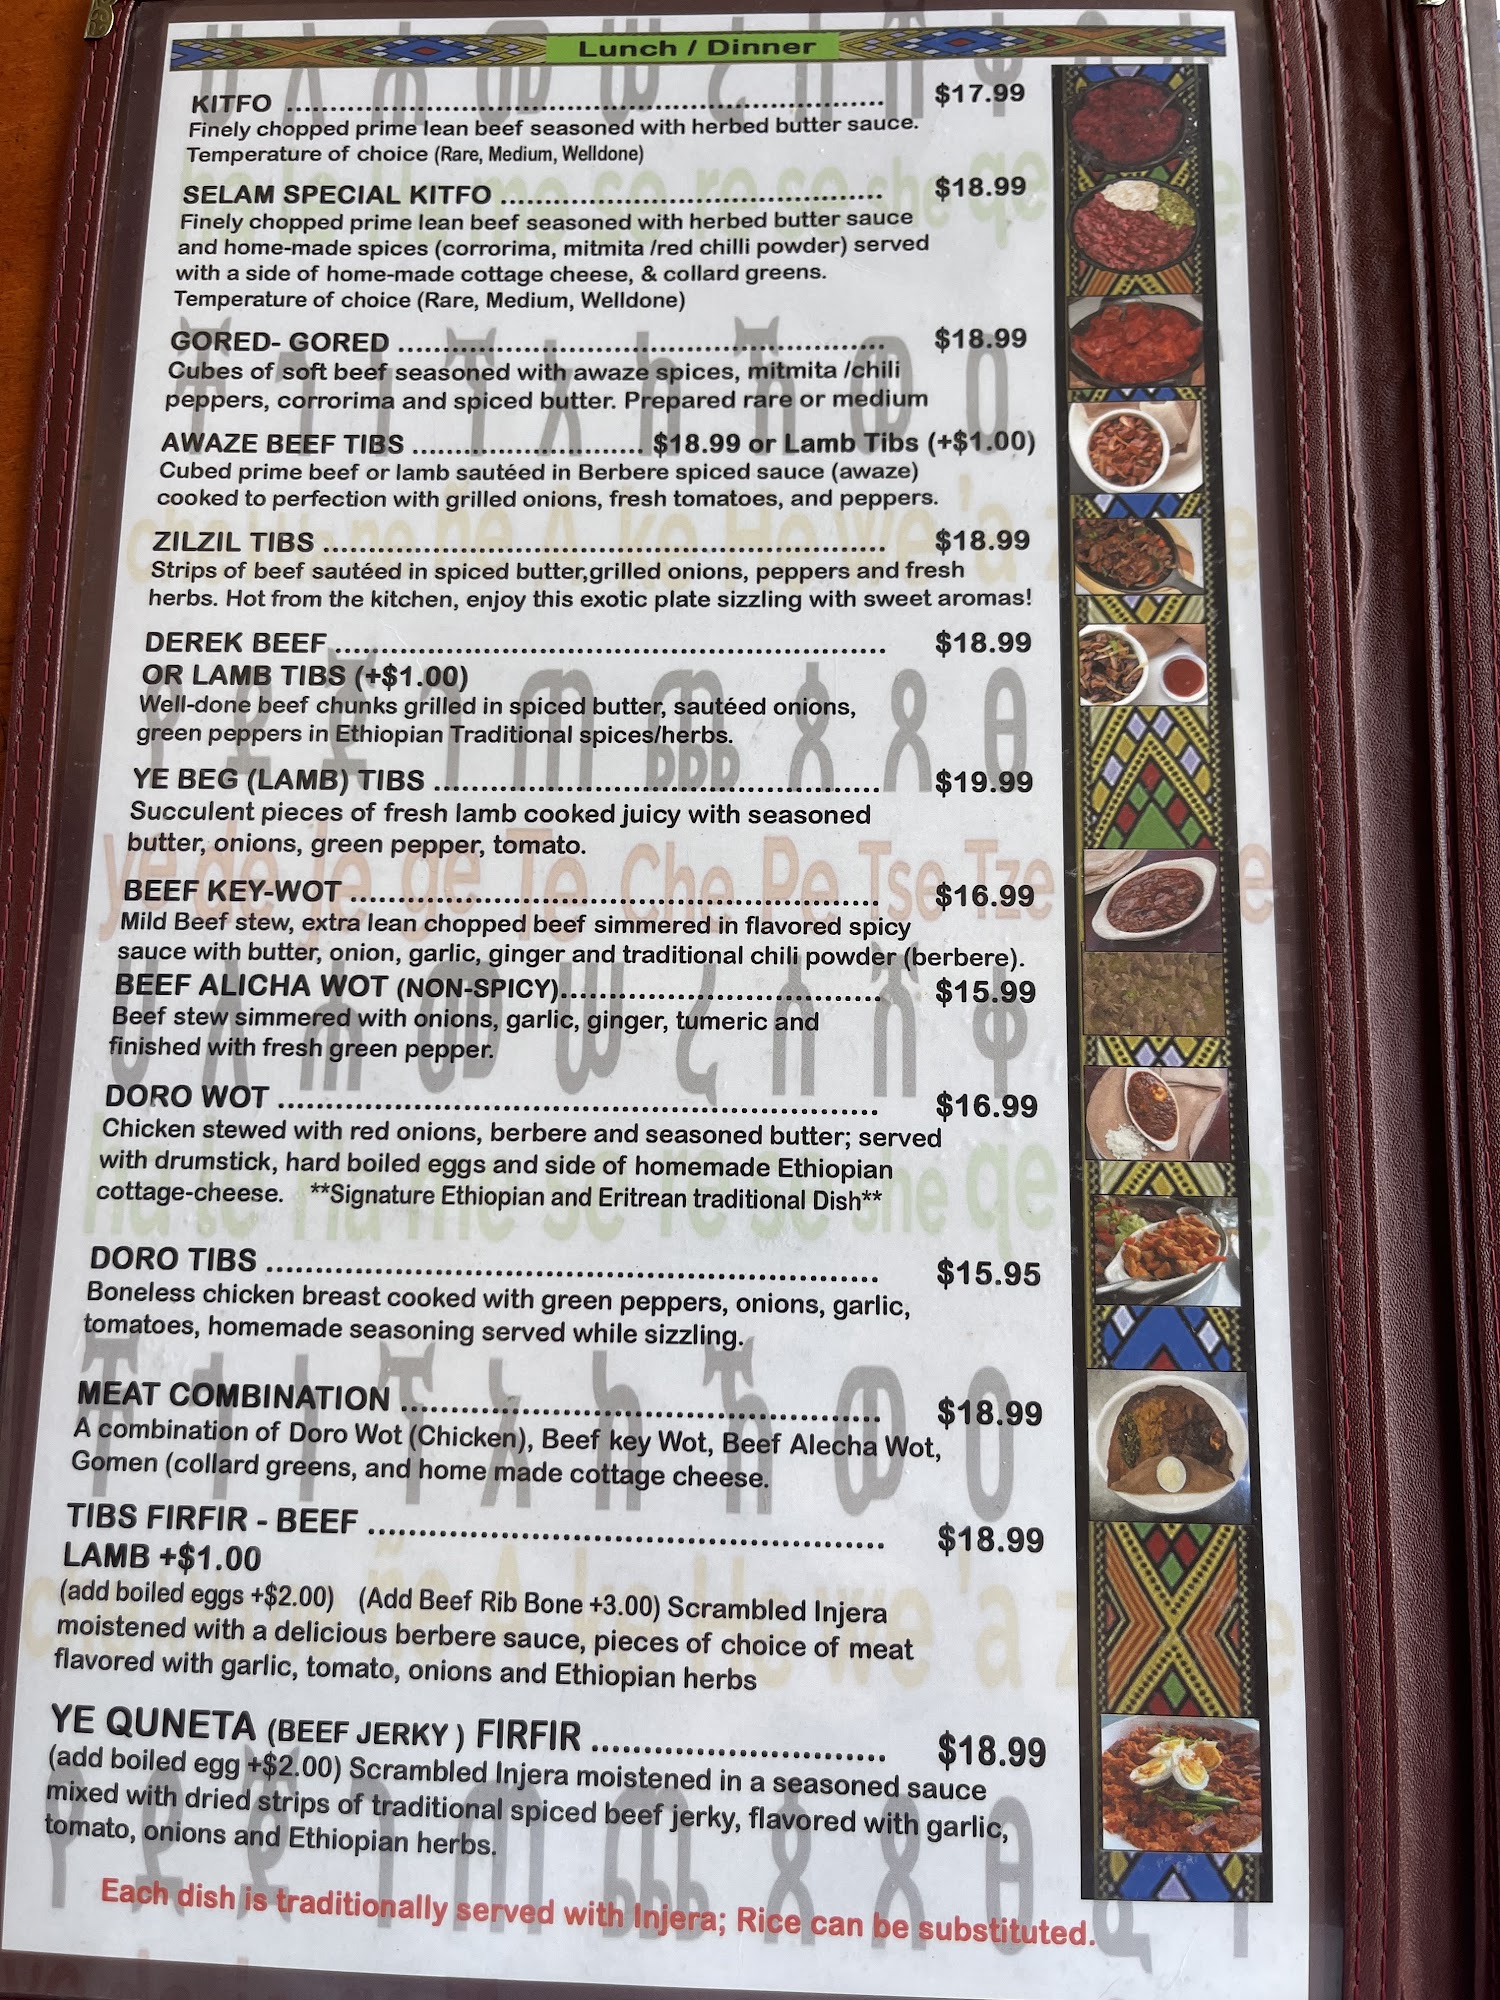 Lunch / Dinner
KITFO ........................................................................ $17.99
Finely chopped prime lean beef seasoned with herbed butter sauce.
Temperature of choice (Rare, Medium, Welldone)
SELAM SPECIAL KITFO ............................................. $18.99
Finely chopped prime lean beef seasoned with herbed butter sauce
and home-made spices (corrorima, mitmita /red chilli powder) served
with a side of home-made cottage cheese, & collard greens.
Temperature of choice (Rare, Medium, Welldone)
GORED- GORED ......................................................... $18.99
Cubes of soft beef seasoned with awaze spices, mitmita /chili
peppers, corrorima and spiced butter. Prepared rare or medium
AWAZE BEEF TIBS ........................... $18.99 or Lamb Tibs (+$1.00)
Cubed prime beef or lamb sautéed in Berbere spiced sauce (awaze)
cooked to perfection with grilled onions, fresh tomatoes, and peppers.
ZILZIL TIBS ................................................................. $18.99
Strips of beef sautéed in spiced butter,grilled onions, peppers and fresh
herbs. Hot from the kitchen, enjoy this exotic plate sizzling with sweet aromas!
DEREK BEEF................................................................ $18.99
OR LAMB TIBS (+$1.00)
Well-done beef chunks grilled in spiced butter, sautéed onions,
green peppers in Ethiopian Traditional spices/herbs.
YE BEG (LAMB) TIBS .................................................. $19.99
Succulent pieces of fresh lamb cooked juicy with seasoned
butter, onions, green pepper, tomato.
BEEF KEY-WOT............................................................ $16.99
Mild Beef stew, extra lean chopped beef simmered in flavored spicy
sauce with butter, onion, garlic, ginger and traditional chili powder (berbere).
BEEF ALICHA WOT (NON-SPICY)................................... $15.99
Beef stew simmered with onions, garlic, ginger, tumeric and
finished with fresh green pepper.
DORO WOT .................................................................. $16.99
Chicken stewed with red onions, berbere and seasoned butter; served
with drumstick, hard boiled eggs and side of homemade Ethiopian
cottage-cheese. **Signature Ethiopian and Eritrean traditional Dish**
DORO TIBS .................................................................. $15.95
Boneless chicken breast cooked with green peppers, onions, garlic,
tomatoes, homemade seasoning served while sizzling.
MEAT COMBINATION .................................................. $18.99
A combination of Doro Wot (Chicken), Beef key Wot, Beef Alecha Wot,
Gomen (collard greens, and home made cottage cheese.
TIBS FIRFIR - BEEF ...................................................... $18.99
LAMB +$1.00
(add boiled eggs +$2.00) (Add Beef Rib Bone +3.00) Scrambled Injera
moistened with a delicious berbere sauce, pieces of choice of meat
flavored with garlic, tomato, onions and Ethiopian herbs
YE QUNETA (BEEF JERKY ) FIRFIR ............................. $18.99
(add boiled egg +$2.00) Scrambled Injera moistened in a seasoned sauce
mixed with dried strips of traditional spiced beef jerky, flavored with garlic,
tomato, onions and Ethiopian herbs.
Each dish is traditionally served with Injera; Rice can be substituted.